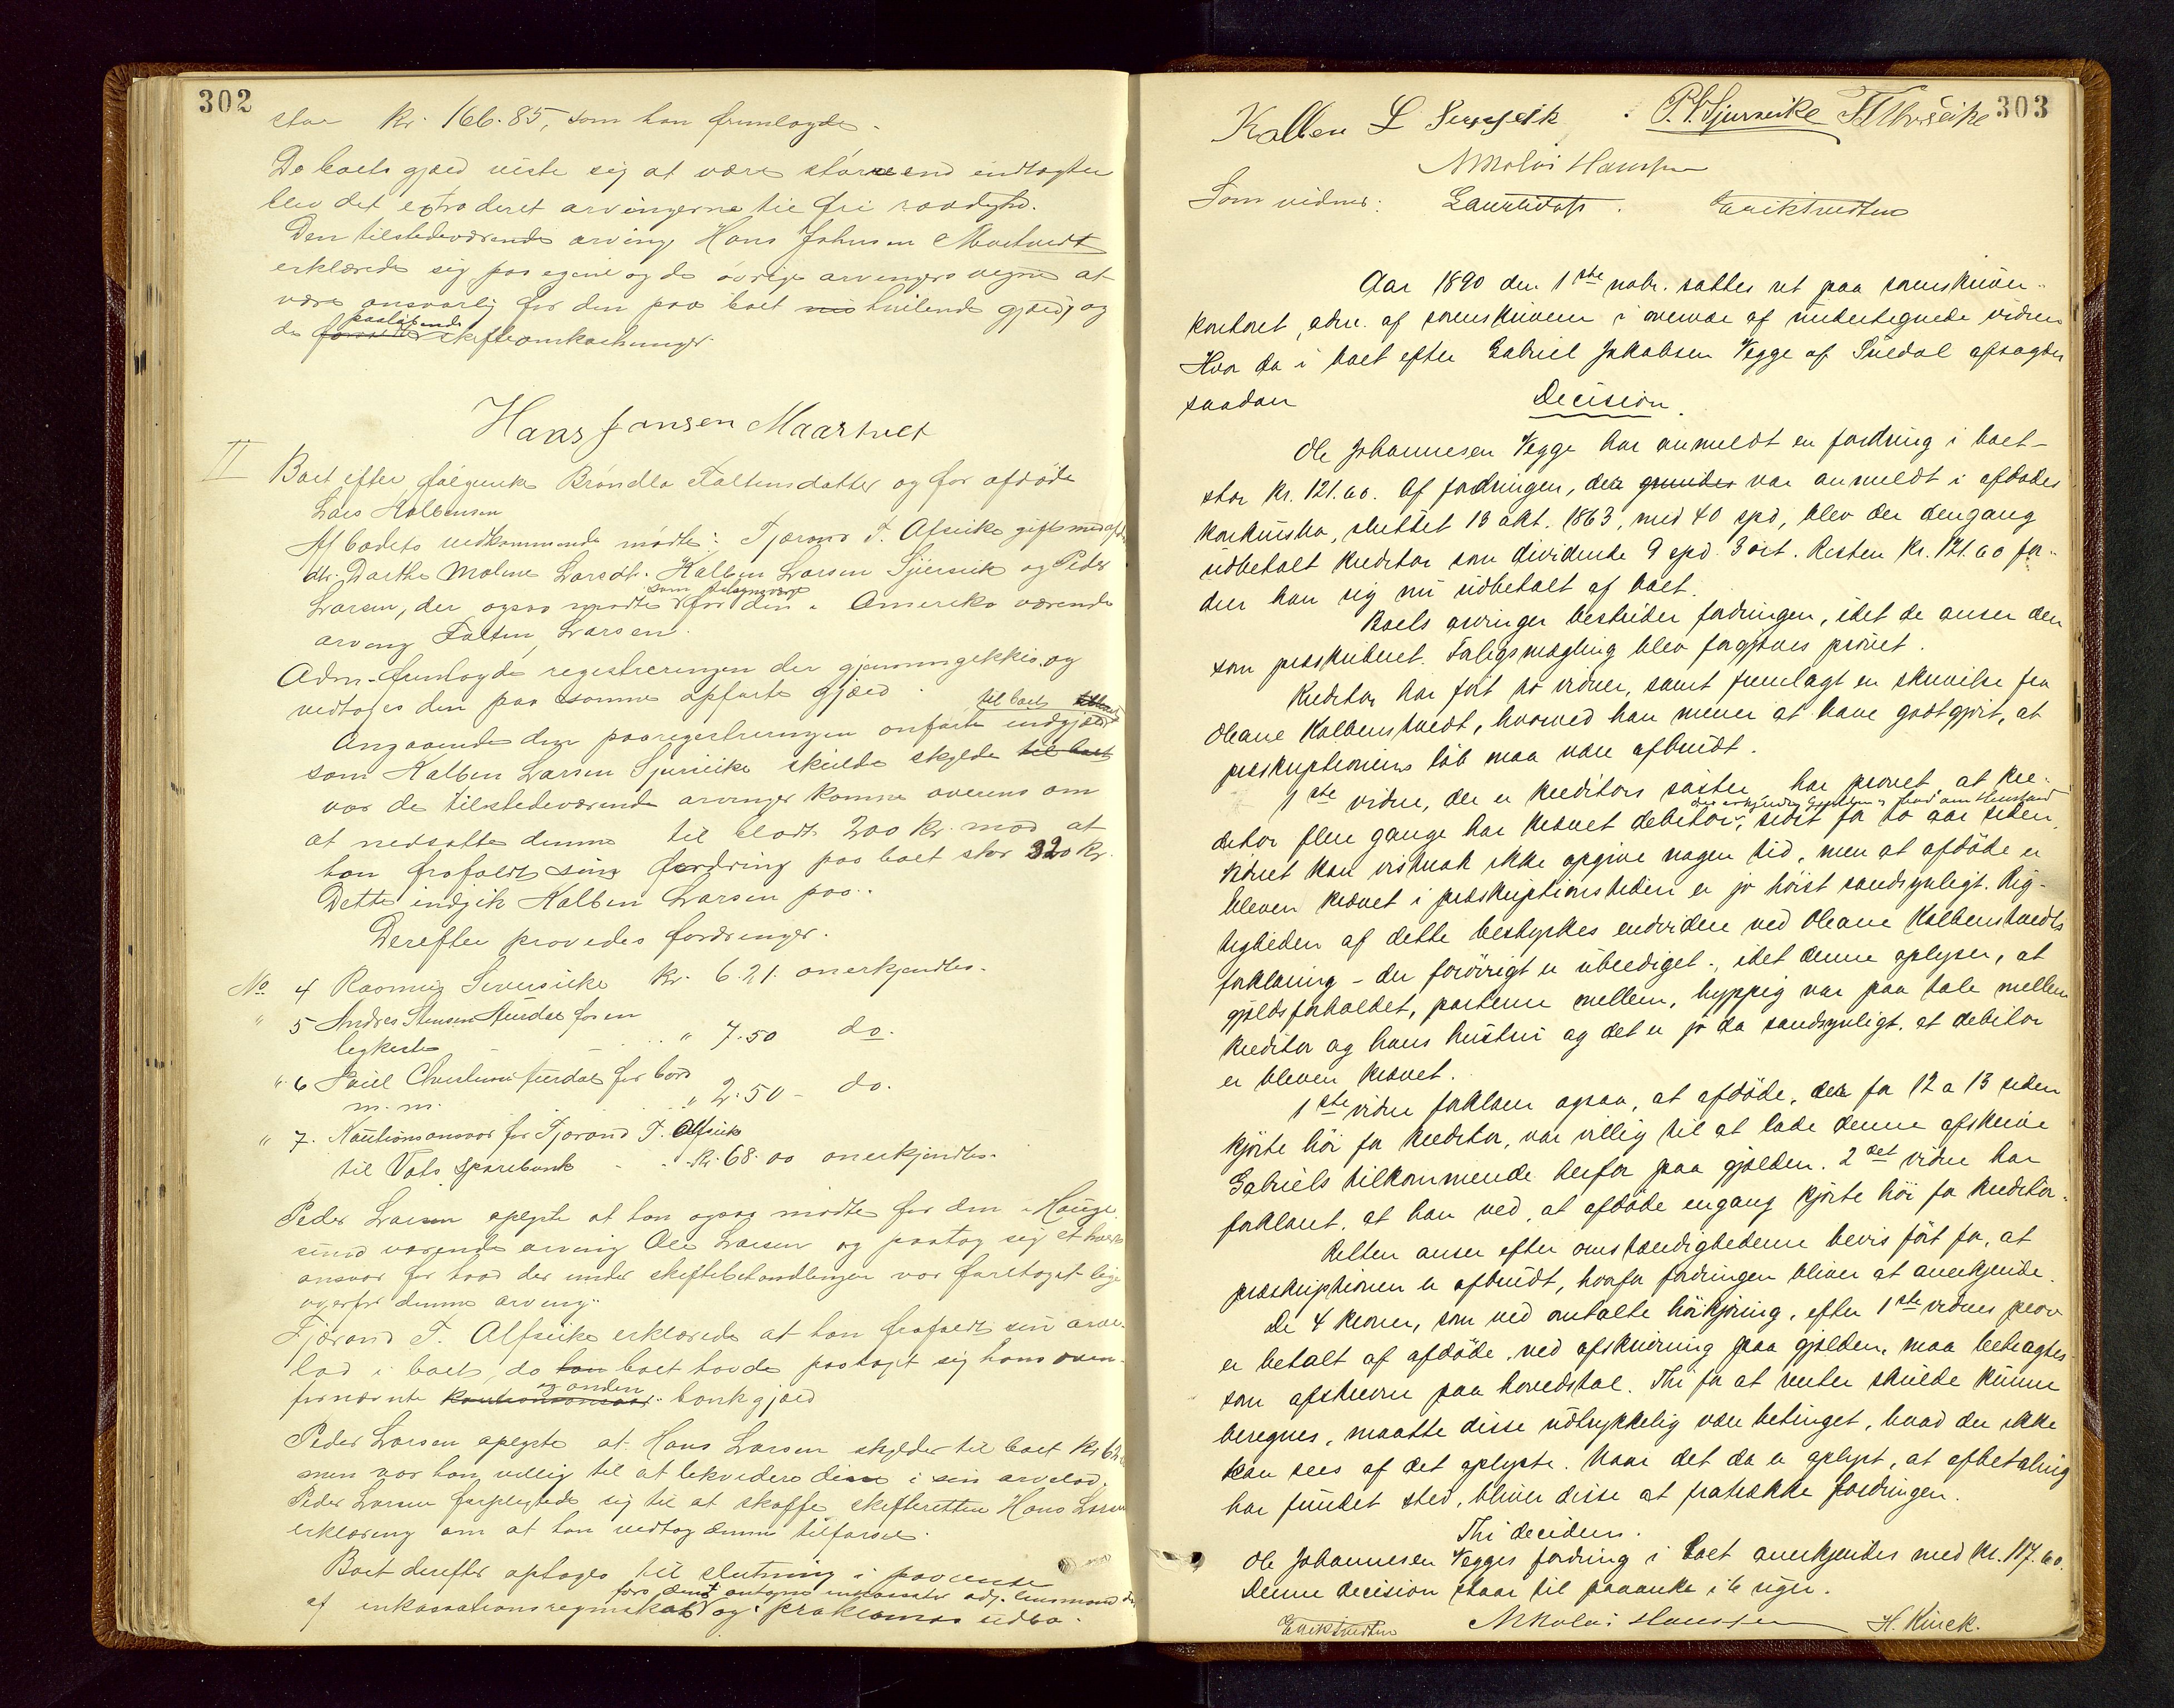 302
stor kr. 166.85, som han fremlagde.
Da boets gjæld viste sig at være større end indtægten
blev det extraderet arvingerne til fri raadighed.
Den tilstedeværende arving Hans Johnsen Maartvedt
erklærede sig paa egne og de øvrige arvingers vegne at
være ansvarlig for den paa boet hvilende gjæld og
de paaløbende skifteomkostninger.
Hans Jonsen Maartvet
II Boet efter følgeenke Brøndla Faltinsdatter og før afdøde
Lars Kolbensen
Af bodets vedkommende mødte: Tjærand T. Alfseike gift med afd.
dtr. Dorthe Maline Larsdt. Kolben Larsen Sjurseike og Peder
Larsen, der ogsaa mødte som for den i Amerika værende
arving Faltin Larsen.
Adm. fremlagde registreringen der gjennemgikkes og
vedtoges den paa samme opførte gjæld.
Angaaende den paa registreringen anførte indgjæld til boet
som Kolben Larsen Sjurseike skulde skylde til boet
var de tilstedeværende arvinger komne overens om
at nedsætte denne til blodt 200 kr. mod at
han frafaldt sin fordring paa boet stor 320 kr.
Dette indgik Kolben Larsen paa.
Derefter prøvedes fordringer.
No 4 Rasmus Seversike kr. 6.21. anerkjendtes.
" 5 Andres Stensen Aurdal for en
ligkiste " 7.50 do.
" 6 Poul Christensen Aurdal for bord
m.m. " 2.50 - do.
" 7. Kautionsansvar for Tjærand T. Alfseike
til Vats sparebank kr. 68.00 anerkjendtes.
Peder Larsen oplyste at han ogsaa mødte for den i Hauge-
sund værende arving Ole Larsen og paatog sig ethvert
ansvar for hvad der under skiftebehandlingen var foretaget lige
overfor denne arving.
Tjærand T. Alfseike erklærede at han frafaldt sin arve-
lod i boet, da han boet havde paataget sig hans oven-
fornævnte kautionsansvar og anden bankgjæld
Peder Larsen oplyste at Hans Larsen skylder til boet kr 62
men var han villig til at likvidere disse i sin arvelod.
Peder Larsen forpligtede sig til at skaffe skifteretten Hans Larsens
erklæring om at han vedtog denne tilførsel.
Boet derefter optoges til slutning i paavente
af inkassationsregnskab fra den antagne inkassator adj. lensmand
og proklamas udløb.
303
Kolben L Sjurseik. P. L. Sjurseike T T Alvseike
Nikolai Hanssen
Som vidner: Erik Tvedten
Aar 1890 den 1ste novbr. sattes ret paa sorenskriver-
kontoret, adm. af sorenskriveren i overvær af undertegnede vidner
Hvor da i boet efter Gabriel Jakobsen Vegge af Suldal afsagdes
saadan
Decision.
Ole Johannesen Vegge har anmeldt en fordring i boet
stor kr. 121.60. Af fordringen, der grundes var anmeldt i afdødes
konkursbo, sluttet 13 okt. 1863, med 40 spd, blev der dengang
udbetalt kreditor som dividende 9 spd. 3 ort. Resten kr. 121.60 for-
drer han sig nu udbetalt af boet.
Boets arvinger bestrider fordringen, idet de anser den
som præskriberet. Forligsmægling blev forgjæves prøvet.
Kreditor har ført to vidner, samt fremlagt en skrivelse fra
Oleane Kolbenstvedt, hvorved han mener at have godtgjort, at
præskriptionens løb maa være afbrudt.
1ste vidne, der er kreditors søster, har provet at kre-
ditor flere gange har krævet debitor, der erkjendte gjælden og bad om henstand sidst for to aar siden.
Vidnet kan vistnok ikke opgive nogen tid, men at afdøde er
bleven krævet i præskriptionstiden er jo høist sandsynligt. Rig-
tigheden af dette bestyrkes endvidere ved Oleane Kolbenstvedts
forklaring - der forøvrigt er ubeediget -, idet denne oplyser, at
gjældsforholdet, parterne mellem, hyppig var paa tale mellem
kreditor og hans hustru og det er jo da sandsynligt, at debitor
er bleven krævet.
1ste vidne forklarer ogsaa, at afdøde, der for 12 a 13 siden
kjørte hø for kreditor, var villig til at lade denne afskrive
Gabriels tilkommende derfor paa gjælden. 2det vidne har
forklaret, at han ved, at afdøde engang kjørte hø for kreditor.
Retten anser efter omstændighederne bevis ført for, at
præskriptionen er afbrudt, hvorfor fordringen bliver at anerkjende.
De 4 kroner, som ved omtalte høikjøring, efter 1ste vidnes prov
er betalt af afdøde, ved afskrivning paa gjælden, maa betragtes
som afskreven paa hovedstol. Thi for at renter skulde kunne
beregnes, maatte disse udtrykkelig være betinget, hvad der ikke
kan sees af det oplyste. Naar det da er oplyst, at afbetaling
har fundet sted, bliver disse at fratrække fordringen.
Thi decideres.
Ole Johannesen Vegges fordring i boet anerkjendes med kr. 117.60.
Denne decision staar til paaanke i 6 uger.
Erik Tvedten Nikolai Hanssen H. Kinck.